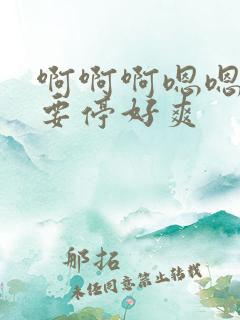 啊啊啊嗯嗯
要停好爽
那拓
未经同意禁止转载